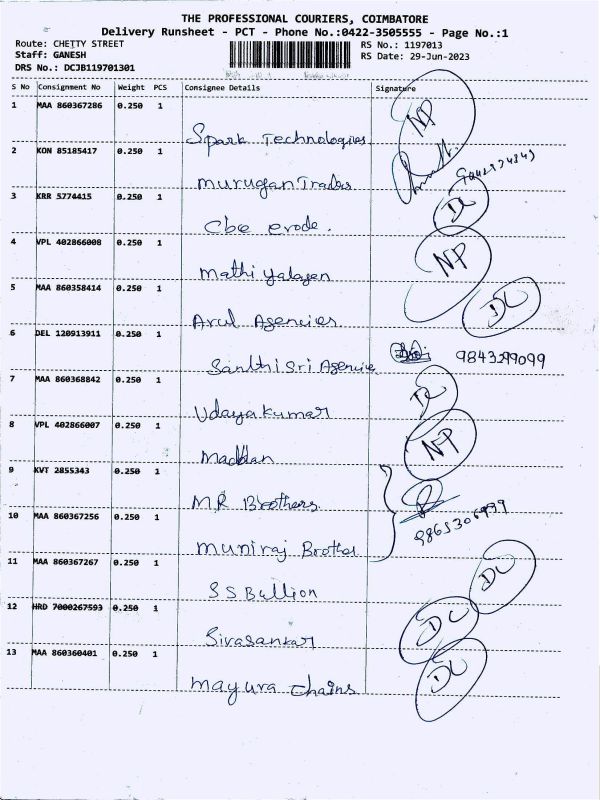 THE PROFESSIONAL COURIERS, COIMBATORE
Delivery Runsheet - PCT - Phone No.:0422-3505555 - Page No.:1
Route: CHETTY STREET RS No.: 1197013
Staff: GANESH RS Date: 29-Jun-2023
DRS No.: DCJB119701301
S No Consignment No Weight PCS Consignee Details Signature
1 MAA 860367286 0.250 1
Spark Technologies NP
2 KON 85185417 0.250 1
Murugan Trades
3 KRR 5774415 0.250 1
Cbe erode. DL
4 VPL 402866008 0.250 1
Mathi yalagen NP
5 MAA 860358414 0.250 1
Arul Agencies DL
6 DEL 120913911 0.250 1
Santhi Sri Agencies 9843299099
7 MAA 860368842 0.250 1
Udaya Kumar DL
8 VPL 402866007 0.250 1
NP
9 KVT 2855343 0.250 1
M.R Brothers
10 MAA 860367256 0.250 1 9865306999
Muniraj Brother
11 MAA 860367267 0.250 1
S S Bullion DL
12 HRD 7000267593 0.250 1
Sivasankar DL
13 MAA 860360401 0.250 1
Mayura Chains DL